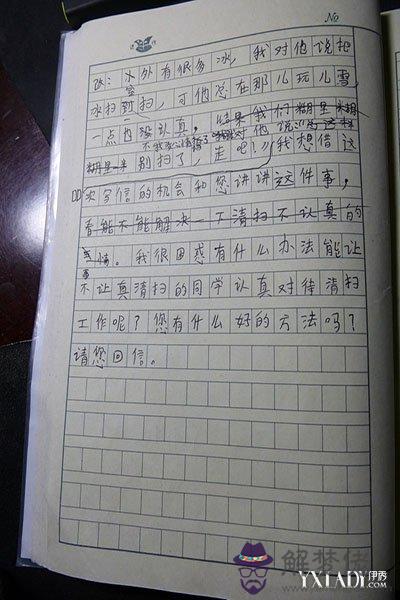 No
改：水外有很多冰，我对他说把
冰扫到扫，可他总在那儿玩儿雪，
一点也没认真，
别扫了，走吧！我想借这
次写信的机会和您讲讲这件事，
看能不能解决一下清扫不认真的
事情。我很困惑有什么办法能让
不认真清扫的同学认真对待清扫
工作呢？您有什么好的方法吗？
请您回信。
解梦佬
YXLADY.伊秀